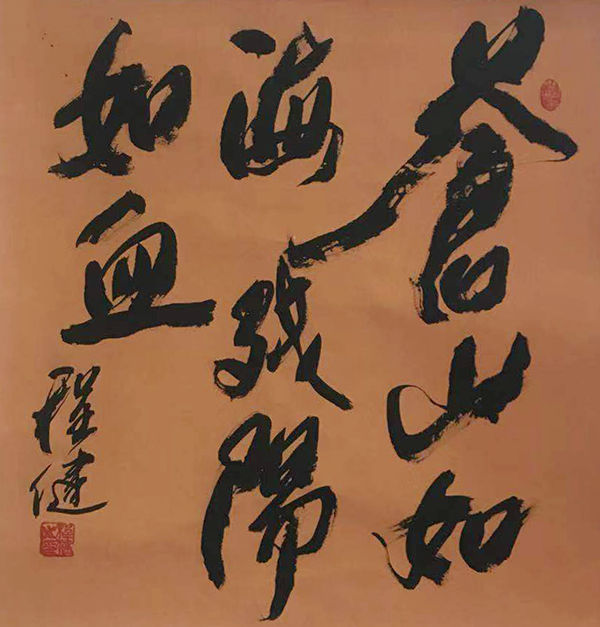 蒼山如
海残陽
如血
程健